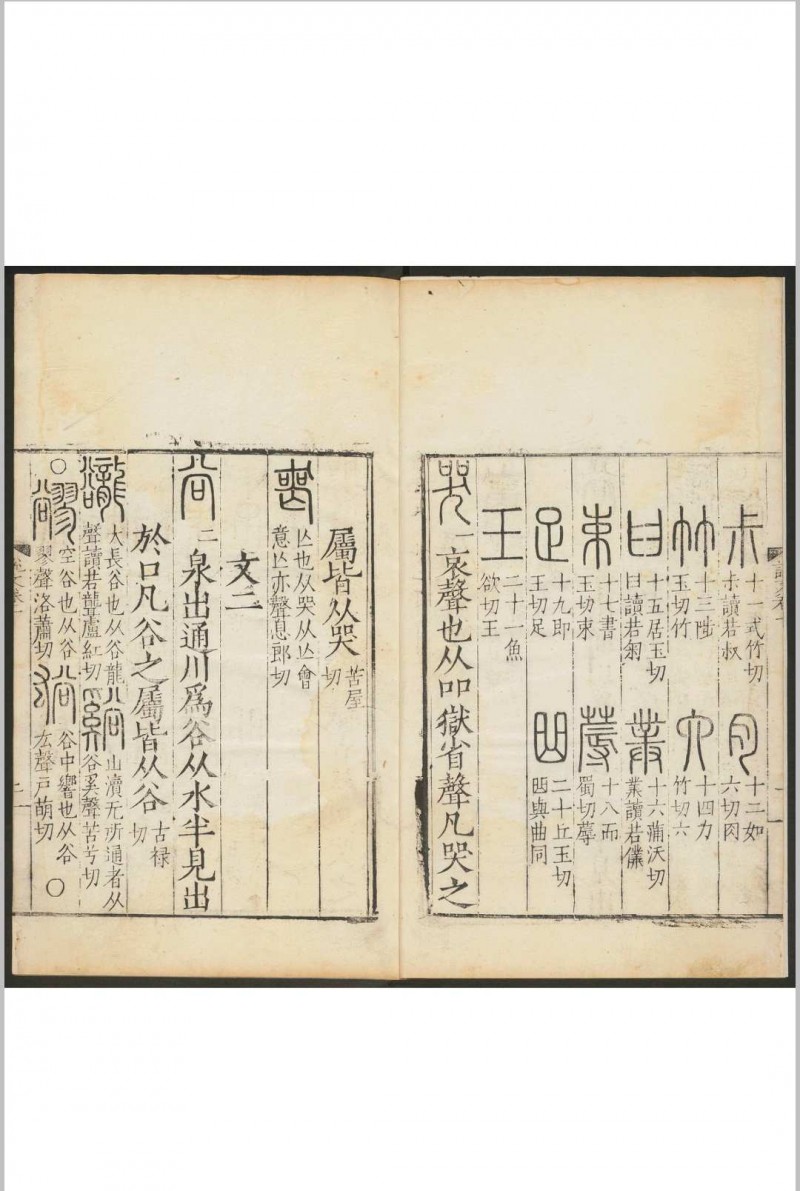 尗 十一式竹切尗讀若叔 肉 十二如六切肉
竹 十三陟玉切竹 六 十四力竹切六
𦥑 十五居玉切𦥑讀若匊 菐 十六蒲沃切菐讀若僕
束 十七書玉切束 蓐 十八而蜀切蓐
足 十九即玉切足 曲 二十丘玉切凹與曲同
王 二十一魚欲切王
哭 一 哀聲也从吅獄省聲凡哭之
屬皆从哭 苦屋切
喪 亾也从哭从亾會意亾亦聲息郎切
文二
谷 二 泉出通川爲谷从水半見出
於口凡谷之屬皆从谷 古禄切
豅 大長谷也从谷龍聲讀若聾盧紅切 谿 山瀆无所通者从谷奚聲苦兮切
○豂 空谷也从谷翏聲洛蕭切 谹 谷中響也从谷厷聲戶萌切○